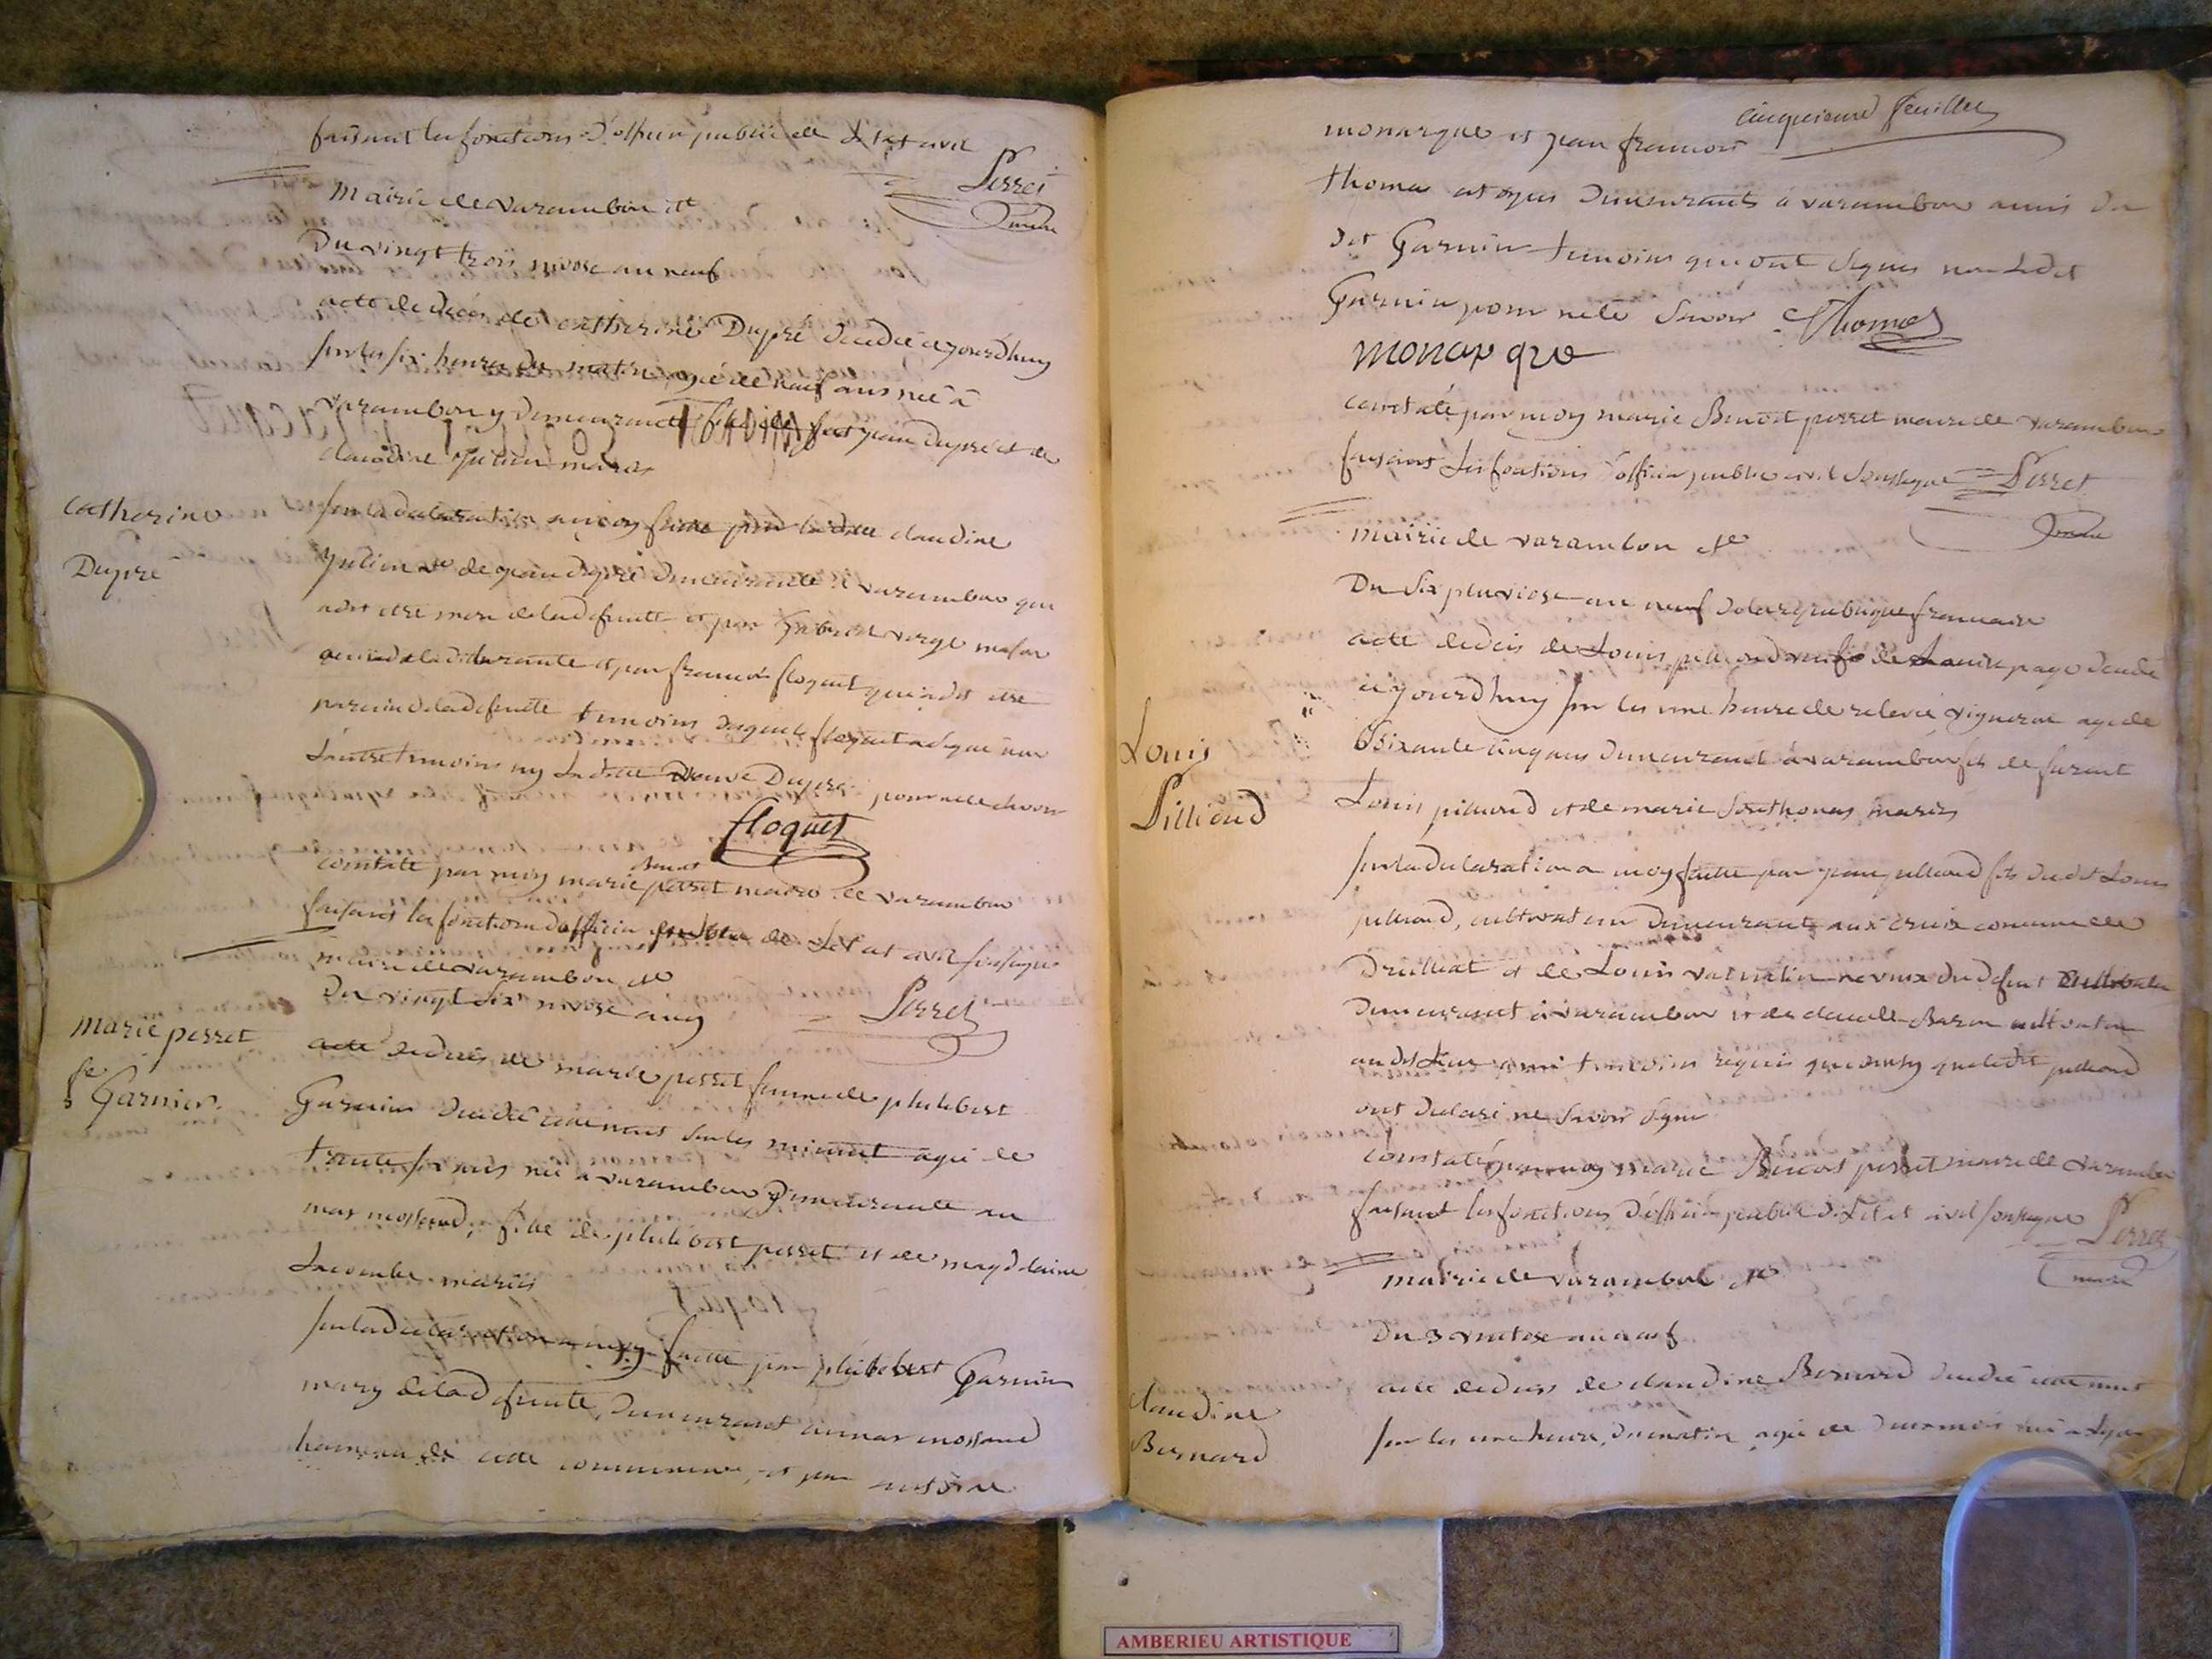 faisant les fonctions d'officier public de l'etat civil
Perret
maire
mairie de varambon etc
Du vingt trois nivose an neuf
acte de décès de catherine Dupré décédée ce jourdhuy
sur les six heures du matin agée de neuf ans née à
varambon y demeurante fille de feu jean dupré et de
claudine Julien mariés
catherine
Dupré
sur la declaration a moy faitte par ladite claudine
Julien ve de jean dupré demeurante a varambon qui
a dit etre mere de lad defunte et par verge
de lad declarante et par francois floquet qui a dit etre
parain de lad defunte temoins desquels floquet a signé non
l'autre temoins ny ladite veuve Dupré pour ne le savoir
floquet
constaté par moy marie Benoit perret maire de varambon
faisant les fonctions d'officier public de l'etat civil soussigné
mairie de varambon etc
Du vingt six nivose an 9
Perret
marie perret
fe Garnier
acte de deces de marie perret femme de philibert
Garnier decedée cette nuit sur les minuit agée de
trente six ans née a varambon demeurante au
mas mossand, fille de philibert perret et de magdelaine
Lacombe mariés
sur la declaration a moy faitte par philibert Garnier
mary de lad defunte, demeurant au mas mossand
hameau de cette commune, et par antoine
cinquieme feuillet
monarque et jean francois
thomas demeurants à varambon amis du
dit Garnier temoins qui ont signés non ledit
Garnier pour ne le savoir Thomas
monarque
constaté par moy marie Benoit perret maire de varambon
faisant les fonctions d'officier public civil soussigné Perret
maire
mairie de varambon etc
Du six pluviose an neuf de la republique francaise
acte de deces de Louis pillioud de page decedé
ce jourdhuy sur les une heure de relevée vigneron agé de
soixante cinq ans demeurant à varambon fils de furent
Louis pillioud et de marie mariés
Louis
Pillioud
sur la declaration a moy faitte par jean pillioud fils dudit Louis
pillioud, cultivateur demeurant aux croix commune de
Druilliat et de Louis neveux du defunt
demeurant à varambon et de claude Baron cultivateur
audit lieu ami temoins requis que ledit pillioud
ont declaré ne savoir signer
constaté par moy marie Benoit perret maire de varambon
faisant les fonctions d'officier public de l'etat civil soussigné Perret
maire
mairie de varambon etc
Du 3 ventose an neuf
claudine
Bernard
acte de deces de claudine Bernard decedée cette nuit
sur les une heure du matin agée de deux mois née a Lyon
AMBERIEU ARTISTIQUE